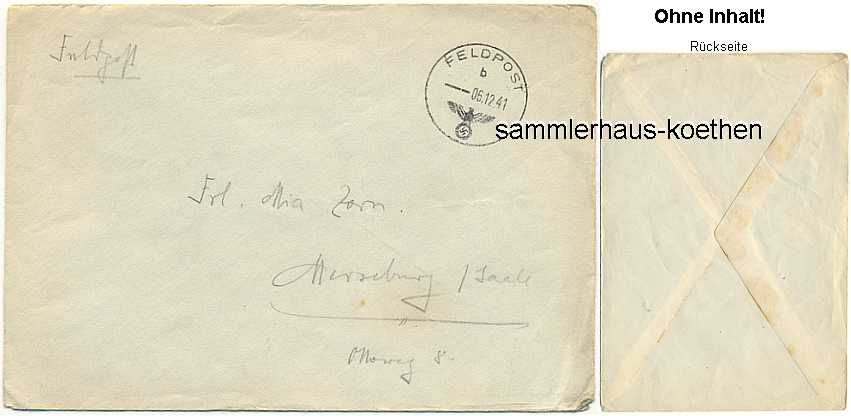 Ohne Inhalt!
Rückseite
Feldpost
FELDPOST
b
06.12.41
sammlerhaus-koethen
Frl. Mia Zorn.
Merseburg / Saale
8